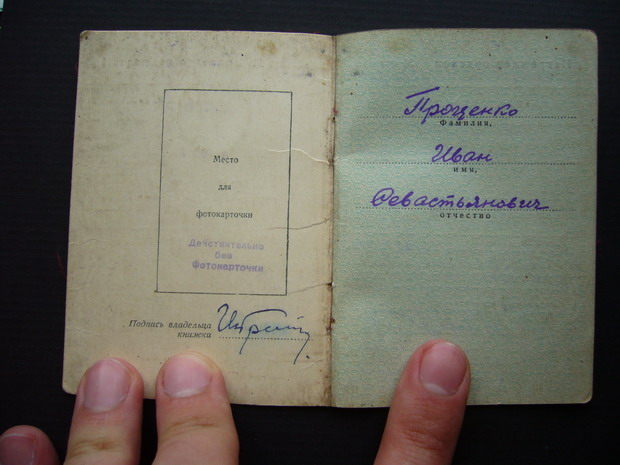 Место
для
фотокарточки
Действительно
без
Фотокарточки
Подпись владельца
книжки
Проценко
Фамилия,
Иван
имя,
Севастьянович
отчество